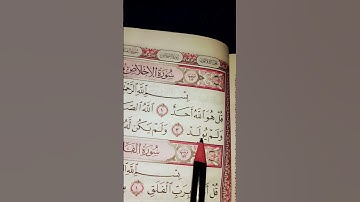 سُورَةُ الإِخْلَاصِ
بِسْمِ اللَّهِ الرَّحْمَ
قُلْ هُوَ اللَّهُ أَحَدٌ ١ اللَّهُ الصَّ
وَلَمْ يُولَدْ ٣ وَلَمْ يَكُن لَّهُ
سُورَةُ الفَلَ
بِسْمِ اللَّهِ
قُلْ أَ بِرَبِّ الْفَلَقِ ١